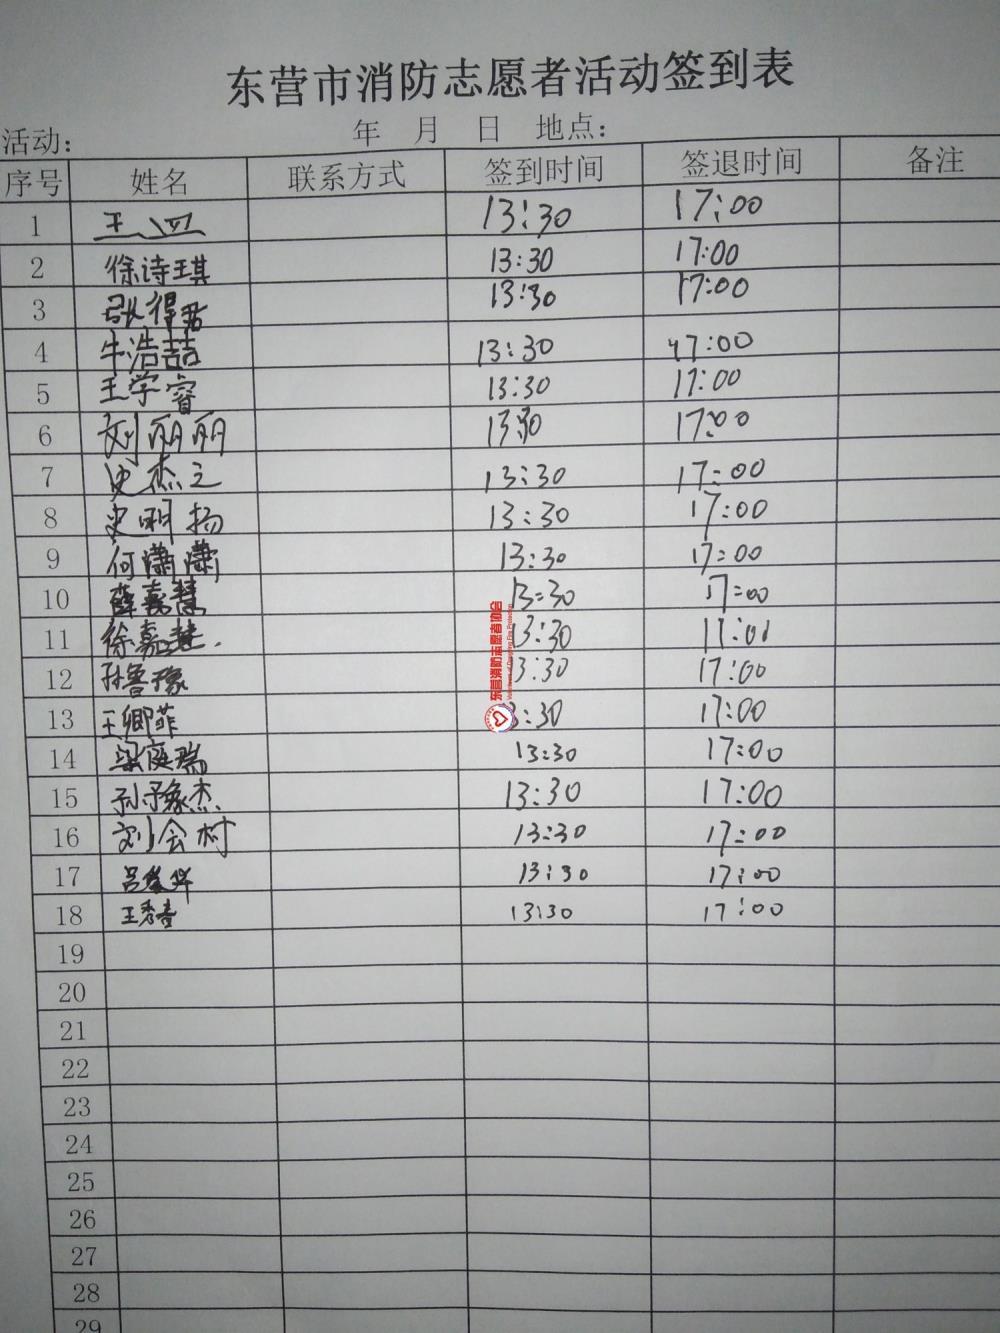 东营市消防志愿者活动签到表
活动： 年 月 日 地点：
序号 姓名 联系方式 签到时间 签退时间 备注
1 13:30 17:00
2 徐诗琪 13:30 17:00
3 张得君 13:30 17:00
4 牛浩喆 13:30 17:00
5 王学睿 13:30 17:00
6 刘丽丽 13:30 17:00
7 史杰之 13:30 17:00
8 史明扬 13:30 17:00
9 何潇潇 13:30 17:00
10 薛嘉慧 13:30 17:00
11 徐嘉慧. 13:30 17:00
12 孙鲁豫 13:30 17:00
13 王卿菲 13:30 17:00
14 梁庭瑞 13:30 17:00
15 孙豫杰 13:30 17:00
16 刘会村 13:30 17:00
17 13:30 17:00
18 王秀青 13:30 17:00
19
20
21
22
23
24
25
26
27
28
29
东营消防志愿者协会